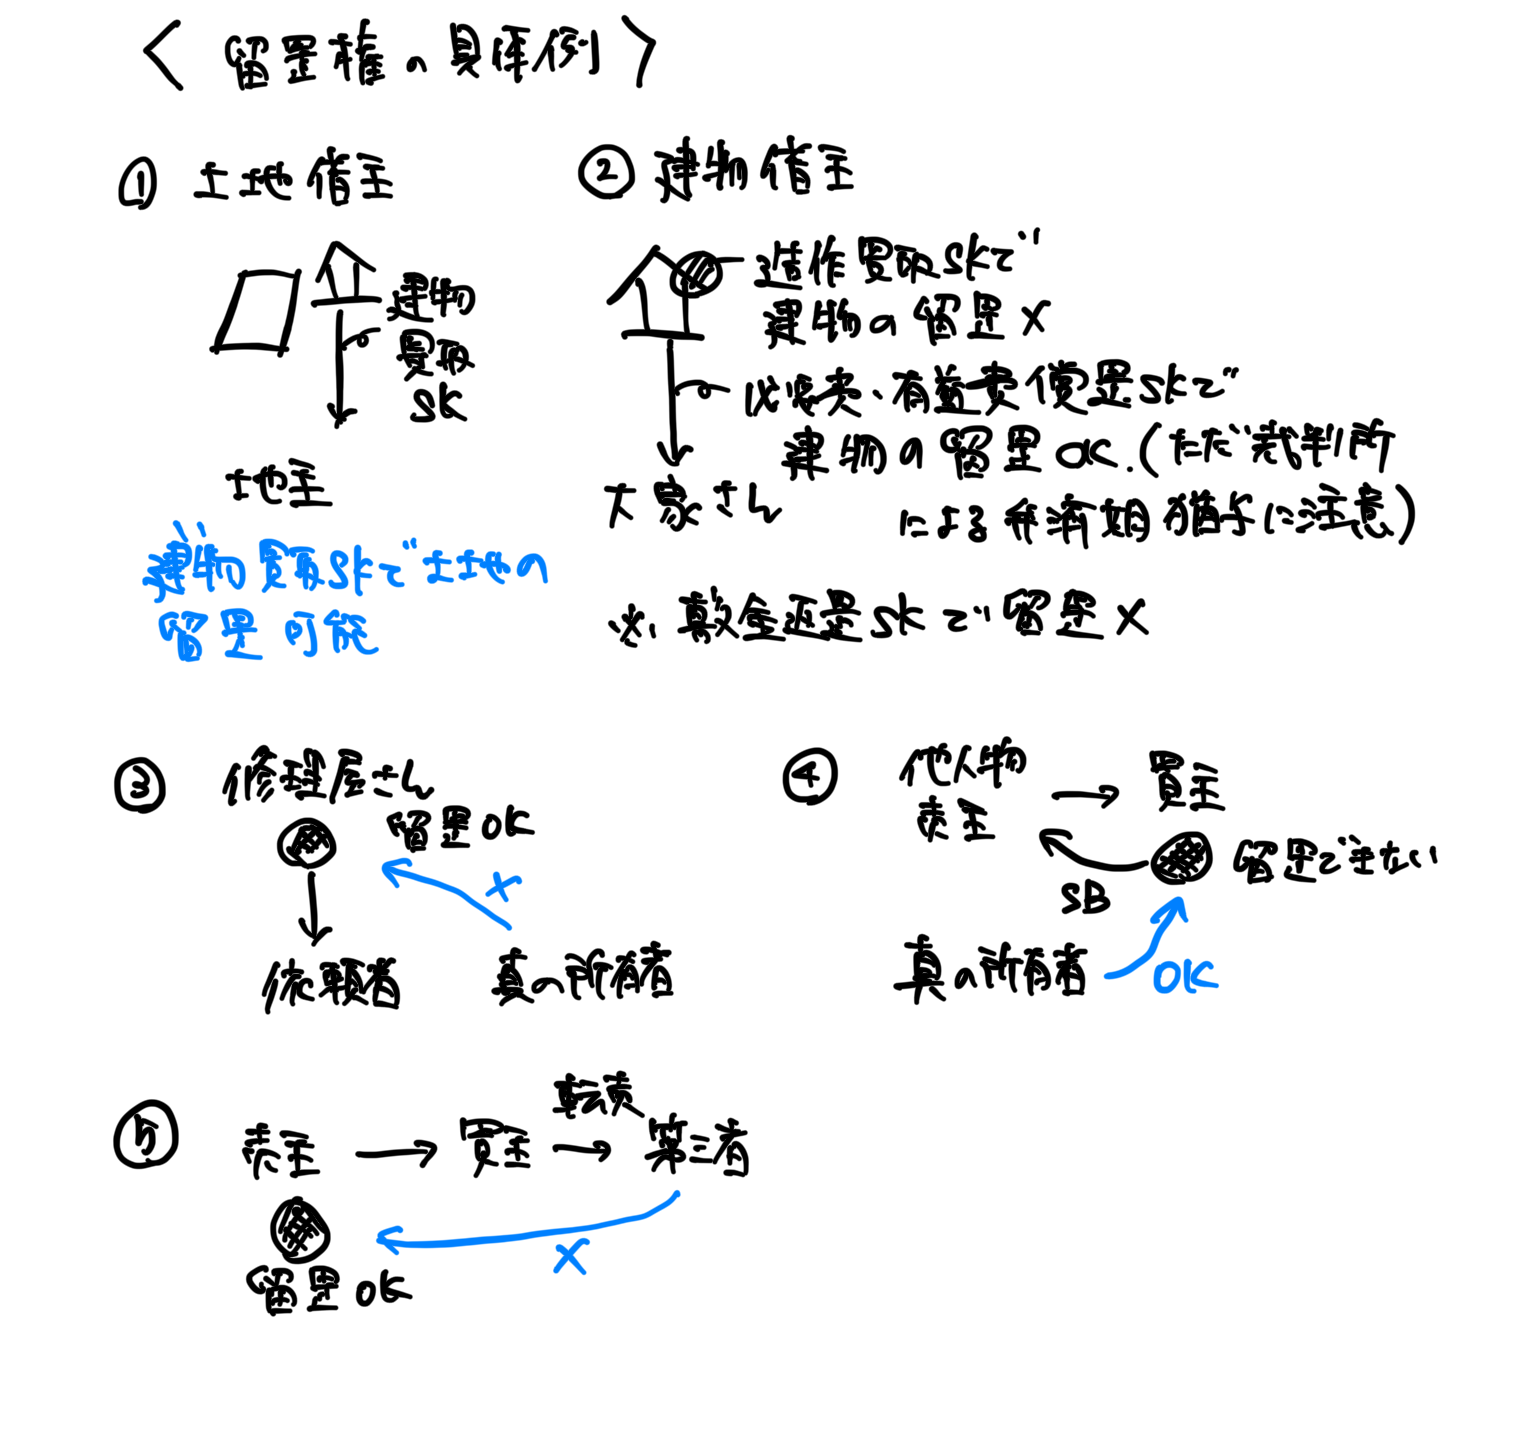 〈 留置権の具体例 〉
① 土地借主
建物
買取
SK
地主
建物買取SKで土地の
留置可能
② 建物借主
造作買取SKで
建物の留置×
必要費、有益費償還SKで
建物の留置OK.(ただ裁判所
による弁済期猶予に注意)
大家さん
※ 敷金返還SKで留置×
③ 修理屋さん
留置OK
×
依頼者
真の所有者
④ 他人物
売主
→ 買主
留置できない
SB
真の所有者
OK
⑤ 売主 → 買主 → 第三者
転売
×
留置OK